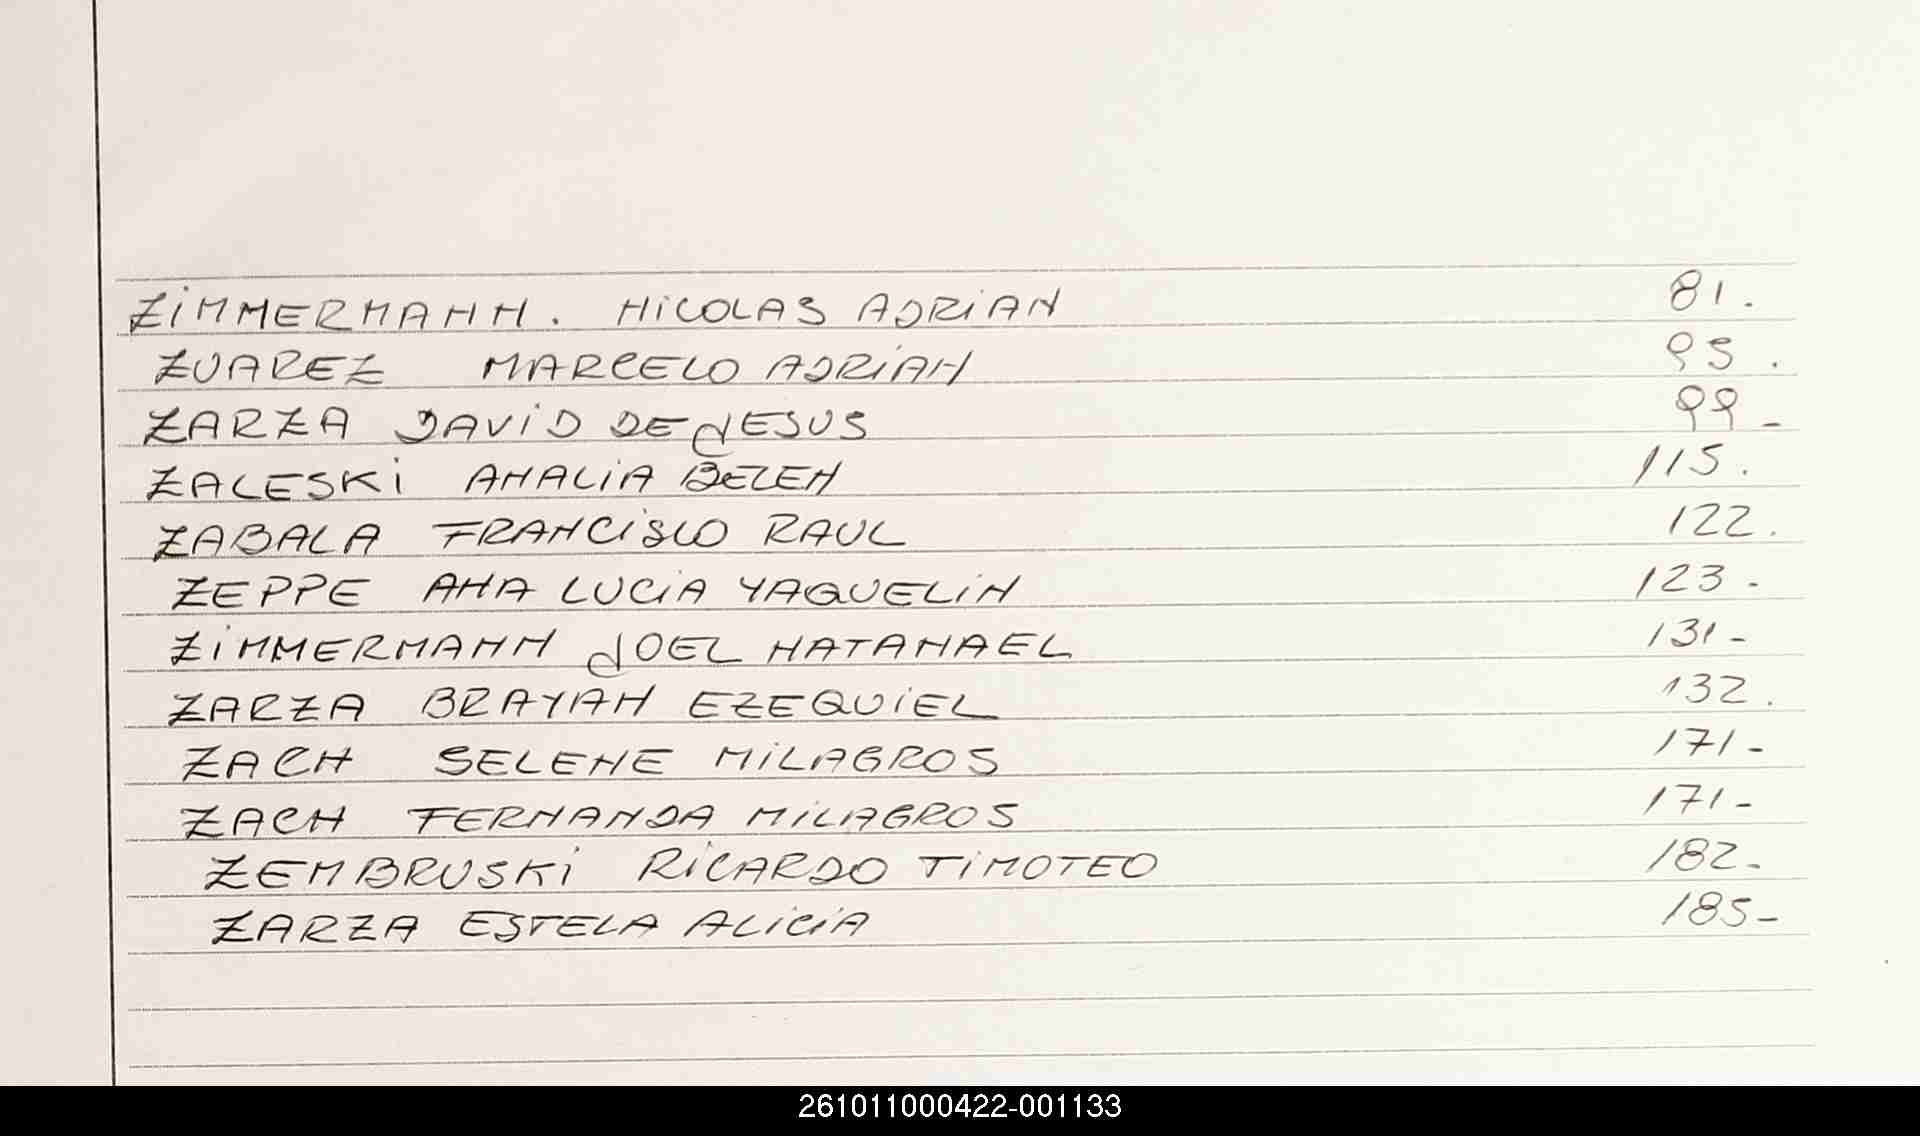 ZIMMERMANN. NICOLAS ADRIAN 81.
ZUAREZ MARCELO ADRIAN 95.
ZARZA DAVID DE JESUS 99-
ZALESKI ANALIA BELEN 115.
ZABALA FRANCISCO RAUL 122.
ZEPPE ANA LUCIA YAQUELIN 123-
ZIMMERMANN JOEL NATANAEL 131-
ZARZA BRAYAN EZEQUIEL 132.
ZACH SELENE MILAGROS 171-
ZACH FERNANDA MILAGROS 171-
ZEMBRUSKI RICARDO TIMOTEO 182-
ZARZA ESTELA ALICIA 185-
261011000422-001133